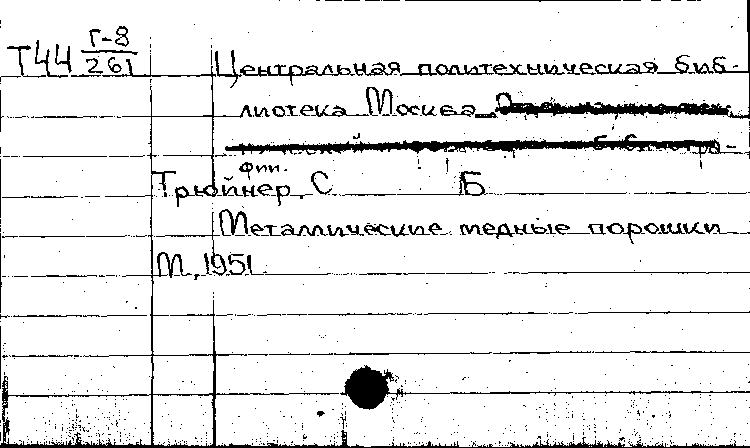 Т44 Г-8/261
Центральная политехническая биб-
лиотека Москва
Трюйнер. С Б
Металлические медные порошки
М, 1951